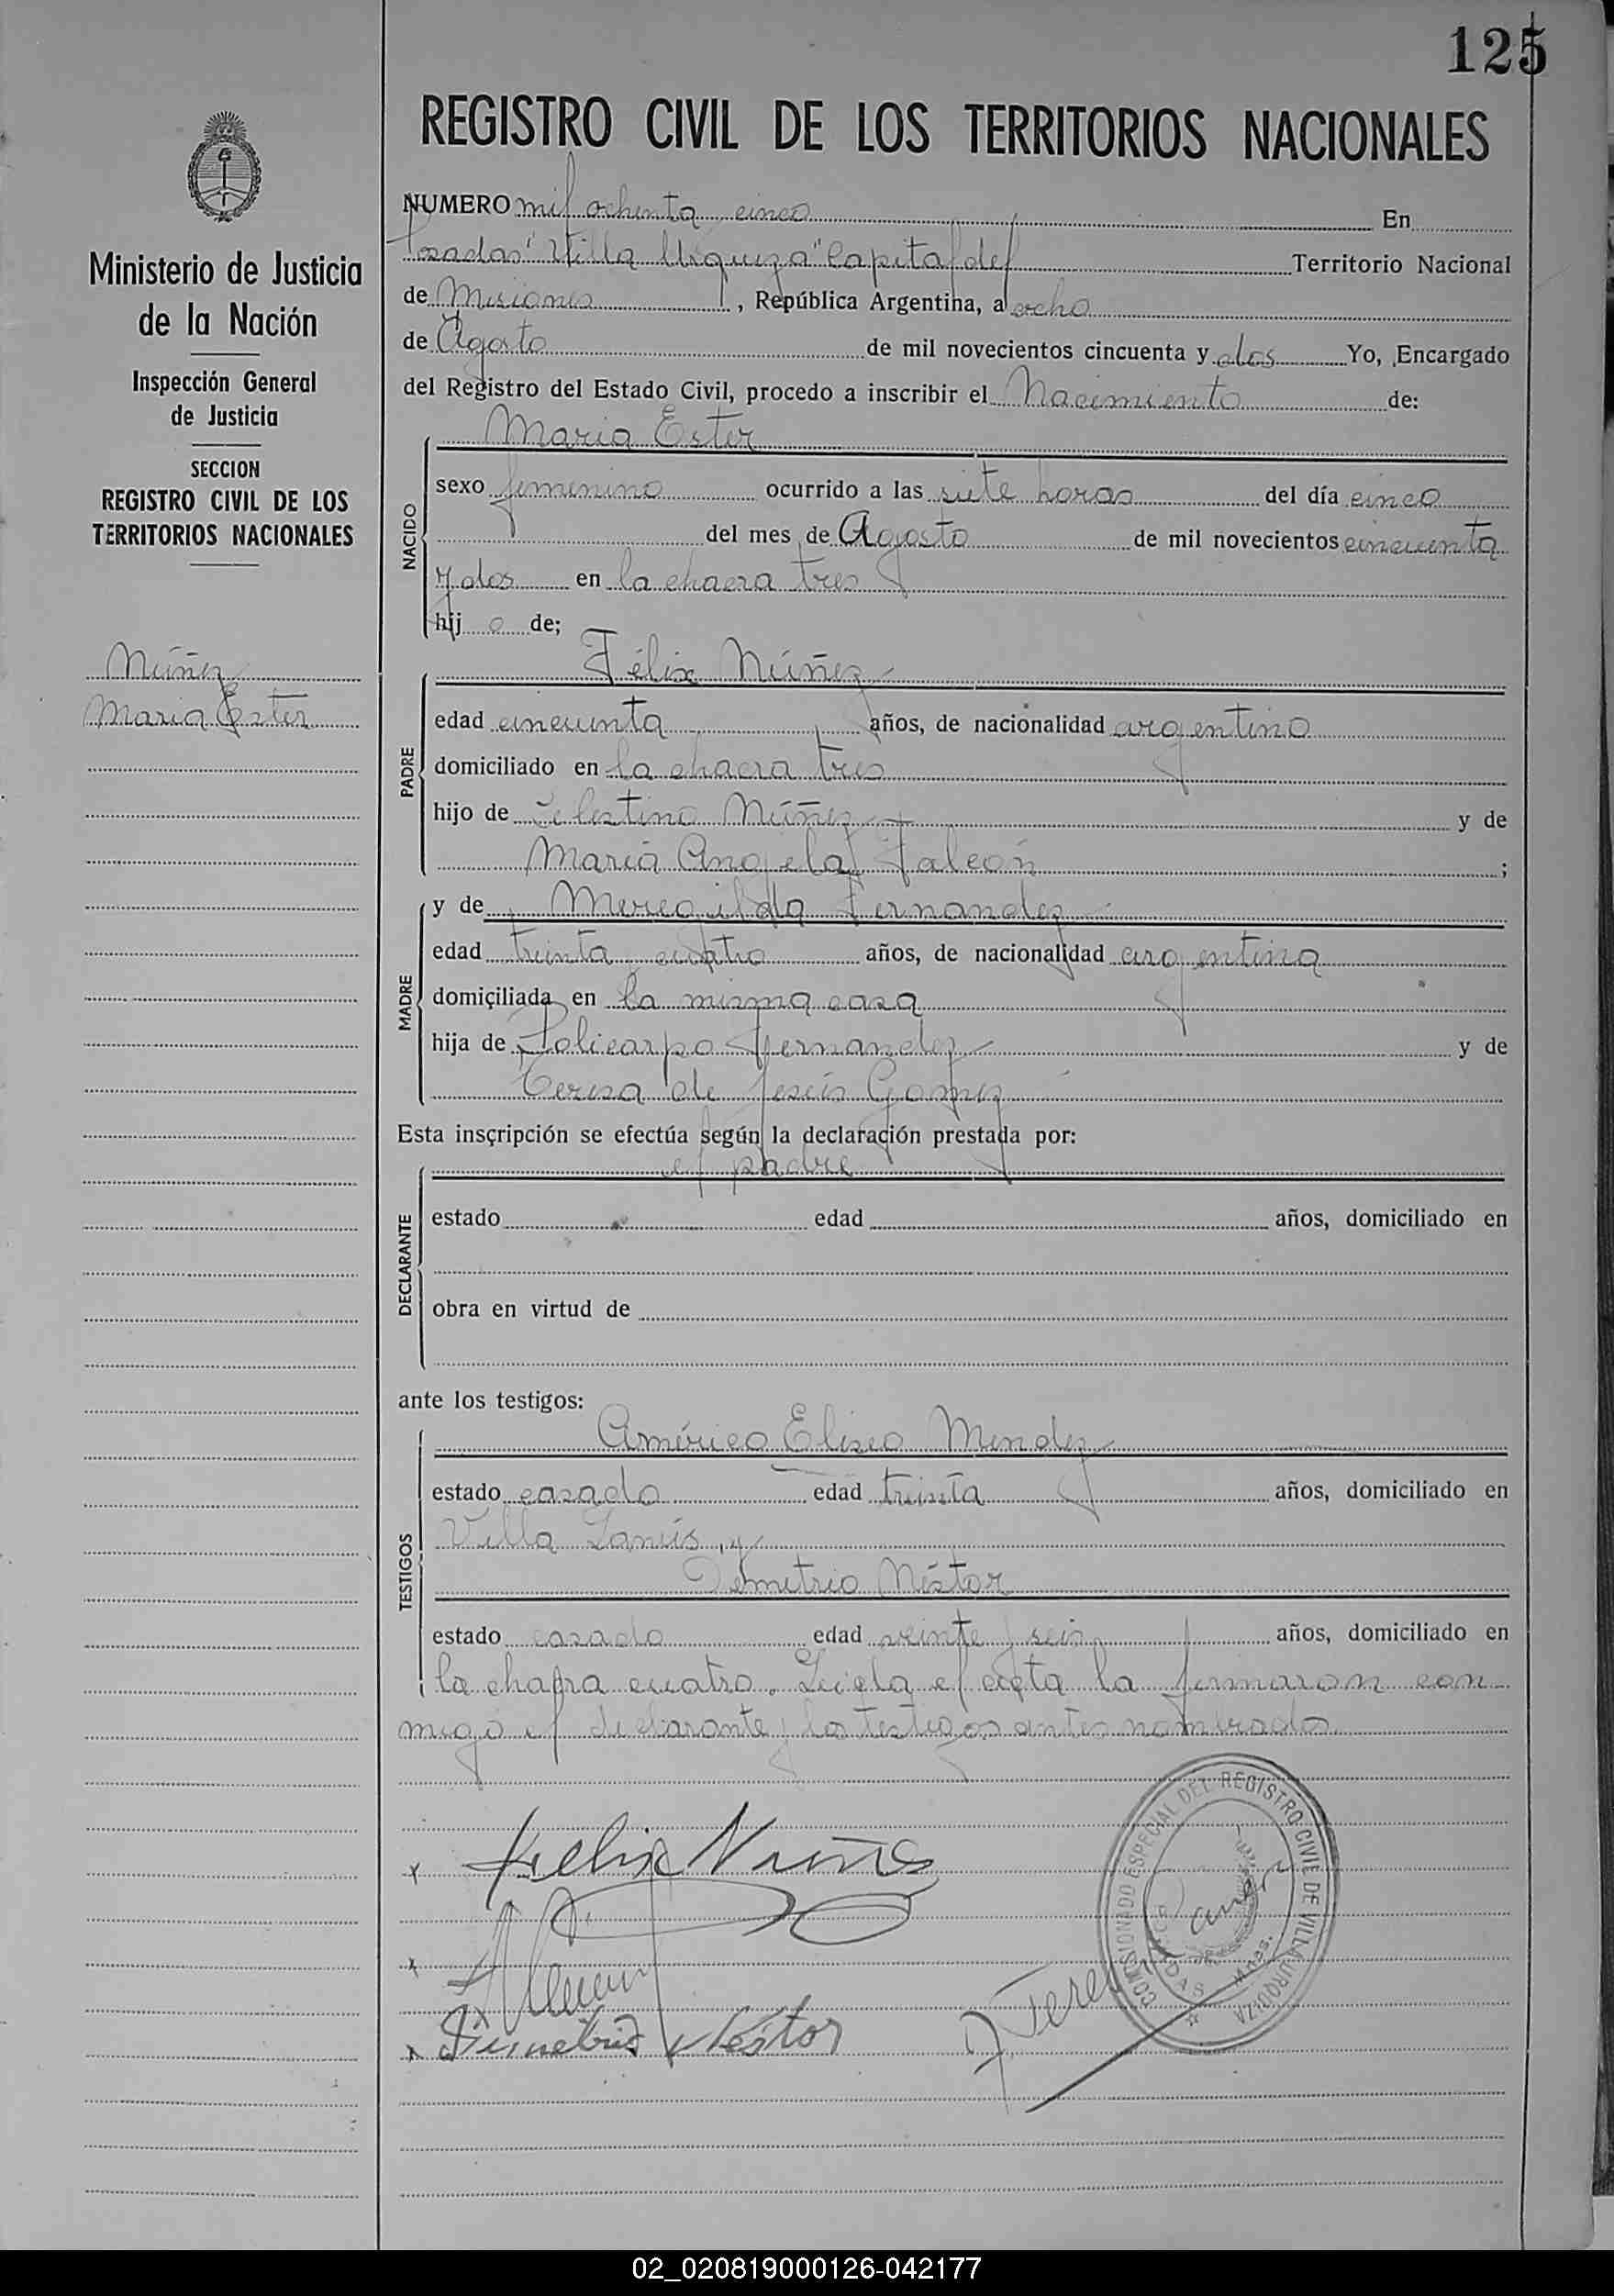 125
REGISTRO CIVIL DE LOS TERRITORIOS NACIONALES
Ministerio de Justicia
de la Nación
Inspección General
de Justicia
SECCION
REGISTRO CIVIL DE LOS
TERRITORIOS NACIONALES
Núñez
Maria Ester
NUMERO mil ochenta cinco En
Posadas "Villa Urquiza" Capital del Territorio Nacional
de Misiones, República Argentina, a ocho
de Agosto de mil novecientos cincuenta y dos Yo, Encargado
del Registro del Estado Civil, procedo a inscribir el Nacimiento de:
NACIDO
Maria Ester
sexo femenino ocurrido a las siete horas del día cinco
del mes de Agosto de mil novecientos cincuenta
y dos en la chacra tres
hij a de;
PADRE
Félix Núñez
edad cincuenta años, de nacionalidad argentino
domiciliado en la chacra tres
hijo de Celestino Núñez y de
María Angela Falcón;
MADRE
y de Meregilda Fernandez
edad treinta cuatro años, de nacionalidad argentina
domiciliada en la misma casa
hija de Policarpo Fernandez y de
Teresa de Jesús Gomez
Esta inscripción se efectúa según la declaración prestada por:
el padre
DECLARANTE
estado edad años, domiciliado en
obra en virtud de
ante los testigos:
TESTIGOS
Américo Eliseo Mendez
estado casado edad treinta años, domiciliado en
Villa Lanús, y
Demetrio Néstor
estado casado edad veinte seis años, domiciliado en
la chacra cuatro. Leida el acta la firmaron con
migo el declarante y los testigos antes nombrados
Felix Nuñes
Demetrio Néstor
COMISIONADO ESPECIAL DEL REGISTRO CIVIL DE VILLA URQUIZA
POSADAS Mnes.
02_020819000126-042177